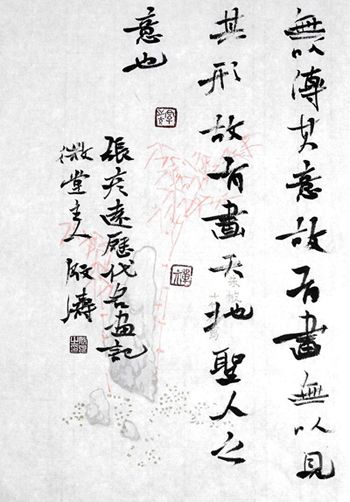 無以傳其意故有書無以見
其形故有畫天地聖人之
意也
張彥遠歷代名畫記
微堂主人濤